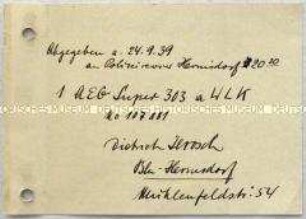 Abgegeben a. 24.9.39
an Polizeirevier Hermsdorf 20 30
1 AEG Super 303 a WLK
No 107881
Dietrich
Bln-Hermsdorf
Mühlenfeldstr. 54
DEUTSCHES HISTORISCHES MUSEUM